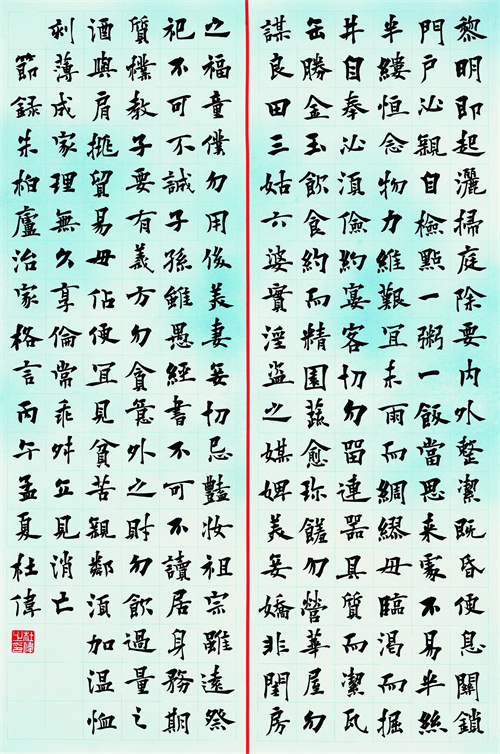 黎明即起灑掃庭除要内外整潔既昏便息關鎖
門户必親自檢點一粥一飯當思来處不易半絲
半縷恒念物力維艱宜未雨而綢繆毋臨渴而掘
井自奉必須儉約宴客切勿留連器具質而潔瓦
缶勝金玉飲食約而精園蔬愈珍饈勿營華屋勿
謀良田三姑六婆實淫盗之媒婢美妾嬌非閨房
之福童僕勿用俊美妻妾切忌豔妝祖宗雖遠祭
祀不可不誠子孫雖愚經書不可不讀居身務期
質樸教子要有義方勿貪意外之財勿飲過量之
酒與肩挑貿易毋佔便宜見貧苦親鄰須加温恤
刻薄成家理無久享倫常乖舛立見消亡
節録朱柏廬治家格言丙午孟夏杜偉